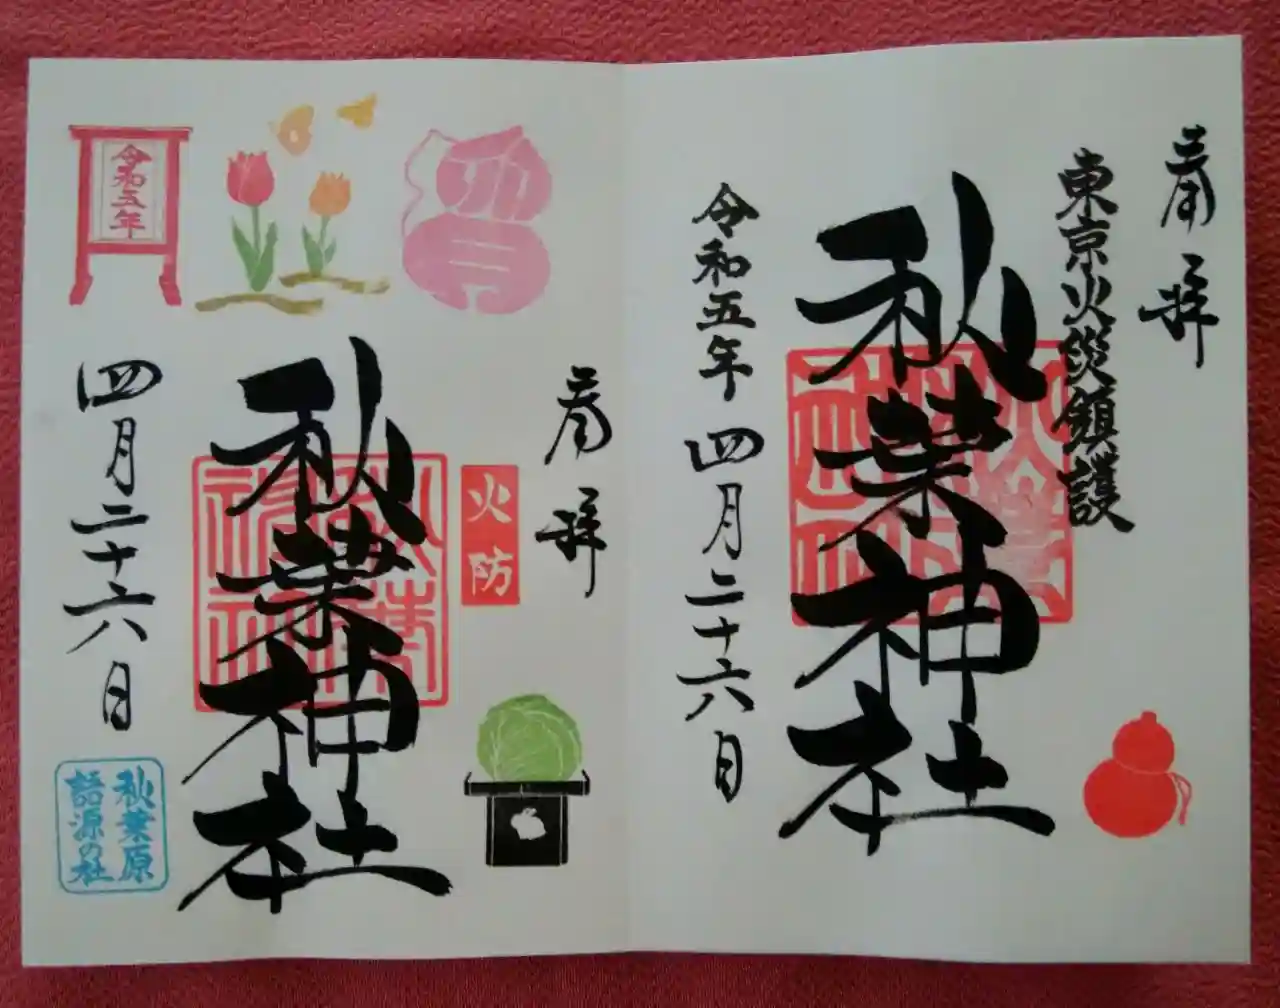 奉拝
東京火災鎮護
秋葉神社
令和五年 四月二十六日
奉拝
火防
秋葉神社
令和五年
四月二十六日
秋葉原
語源の社